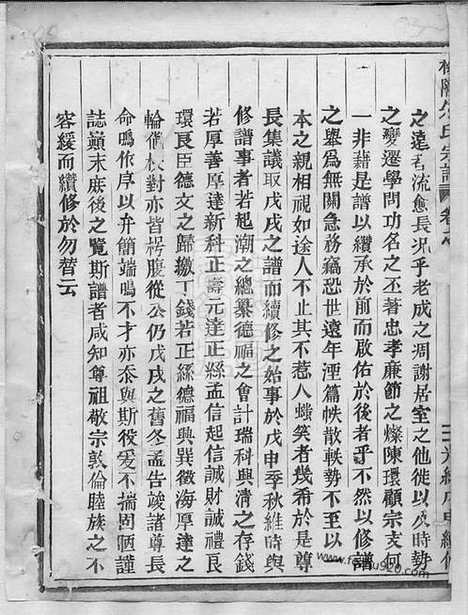 之遠若流愈長況乎老成之凋謝居室之他徙以及時勢
之變遷學問功名之丕著忠孝廉節之燦陳環顧宗支何
一非藉是譜以纘承於前而啟佑於後者乎不然以修譜
之舉為無關急務竊恐世遠年湮篇帙散軼勢不至以
本之親相視如途人不止其不惹人蚩笑者幾希於是尊
長集議取戊戌之譜而續修之始事於戊申季秋維時與
修譜事者若起潮之總纂德福之會計瑞科與清之存錢
若厚善厚達新科正壽元達正縣孟信起信誠財誠禮良
環良臣德文之歸繳丁錢若正綠德福興巽徵海厚達之
輪值校對亦皆枵腹從公仍戊戌之舊冬孟告竣諸尊長
命鳴作序以弁簡端鳴不才亦忝與斯役爰不揣固陋謹
誌巔末庶後之覽斯譜者咸知尊祖敬宗敦倫睦族之不
容緩而續修於勿替云
氏宗譜 卷之
光緒戊申續修